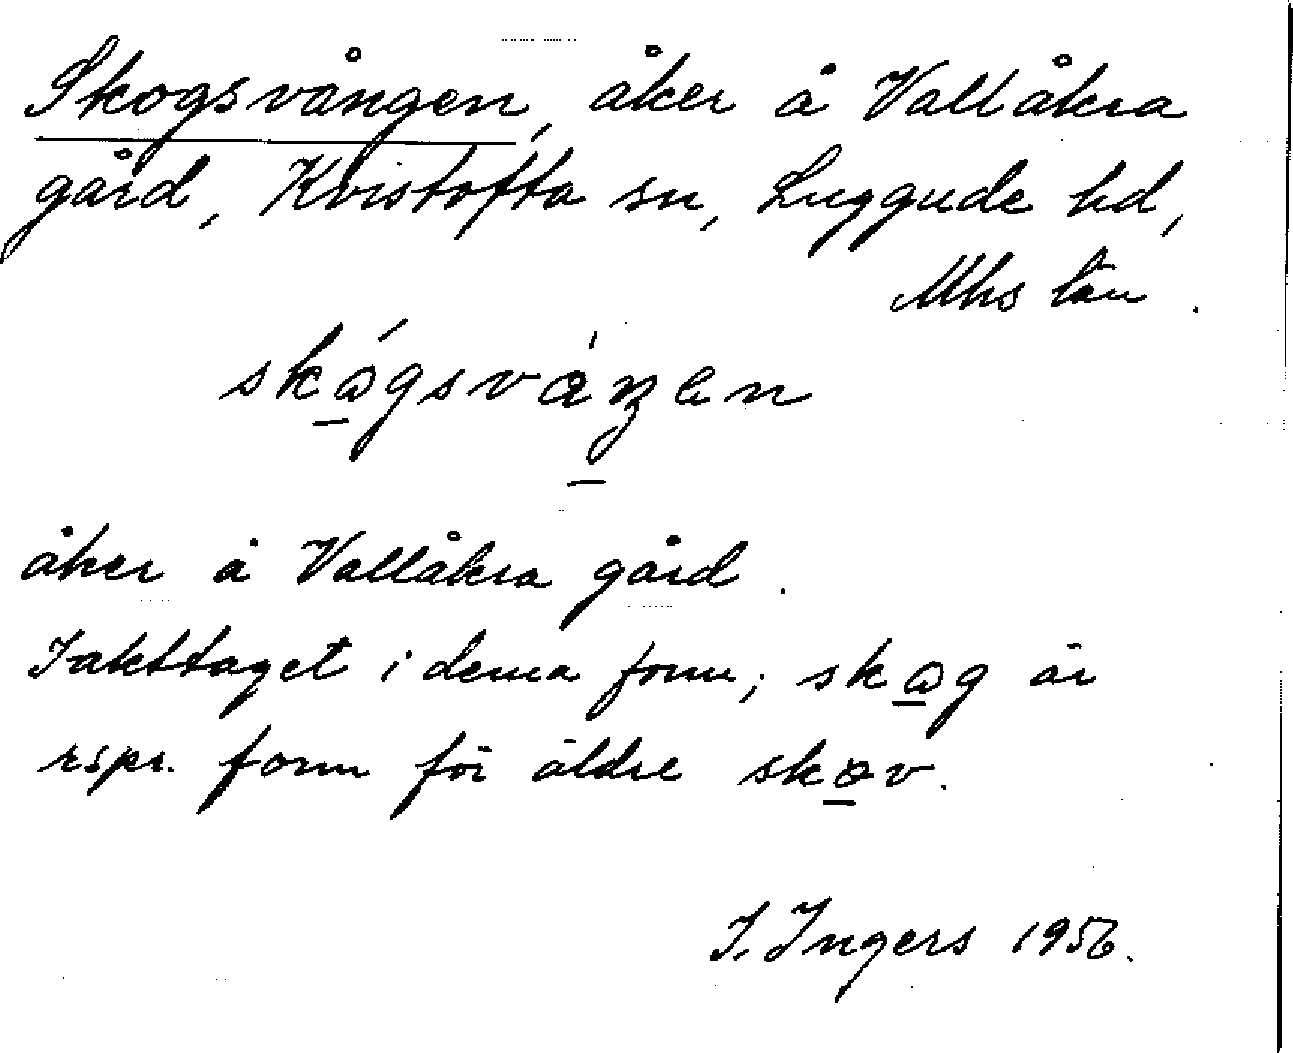 Skogsvången, åker å Vallåkra
gård, Kvistofta sn, Luggude hd,
Mhs län.
skǻgsvàŋen
åker å Vallåkra gård.
Iakttaget i denna form; skåg är
rspr. form för äldre skov.
I. Ingers 1956.